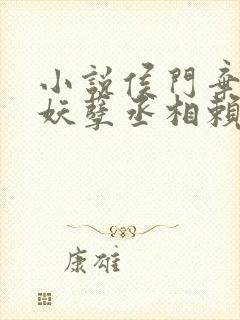 小說侯門棄
妖孽丞相賴
康雄